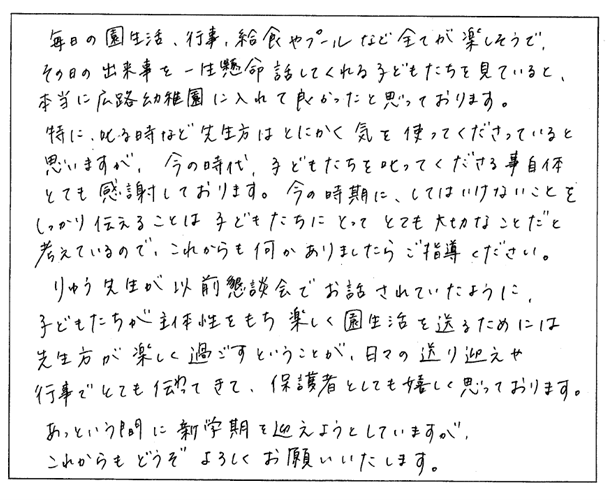 毎日の園生活、行事、給食やプールなど全てが楽しそうで、
その日の出来事を一生懸命話してくれる子どもたちを見ていると、
本当に広路幼稚園に入れて良かったと思っております。
特に、叱る時など先生方はとにかく気を使ってくださっていると
思いますが、今の時代、子どもたちを叱ってくださる事自体
とても感謝しております。今の時期に、してはいけないことを
しっかり伝えることは子どもたちにとってとても大切なことだと
考えているので、これからも何かありましたらご指導ください。
りゅう先生が以前懇談会でお話されていたように、
子どもたちが主体性をもち楽しく園生活を送るためには
先生方が楽しく過ごすということが、日々の送り迎えや
行事でとても伝わってきて、保護者としても嬉しく思っております。
あっという間に新学期を迎えようとしていますが、
これからもどうぞよろしくお願いいたします。